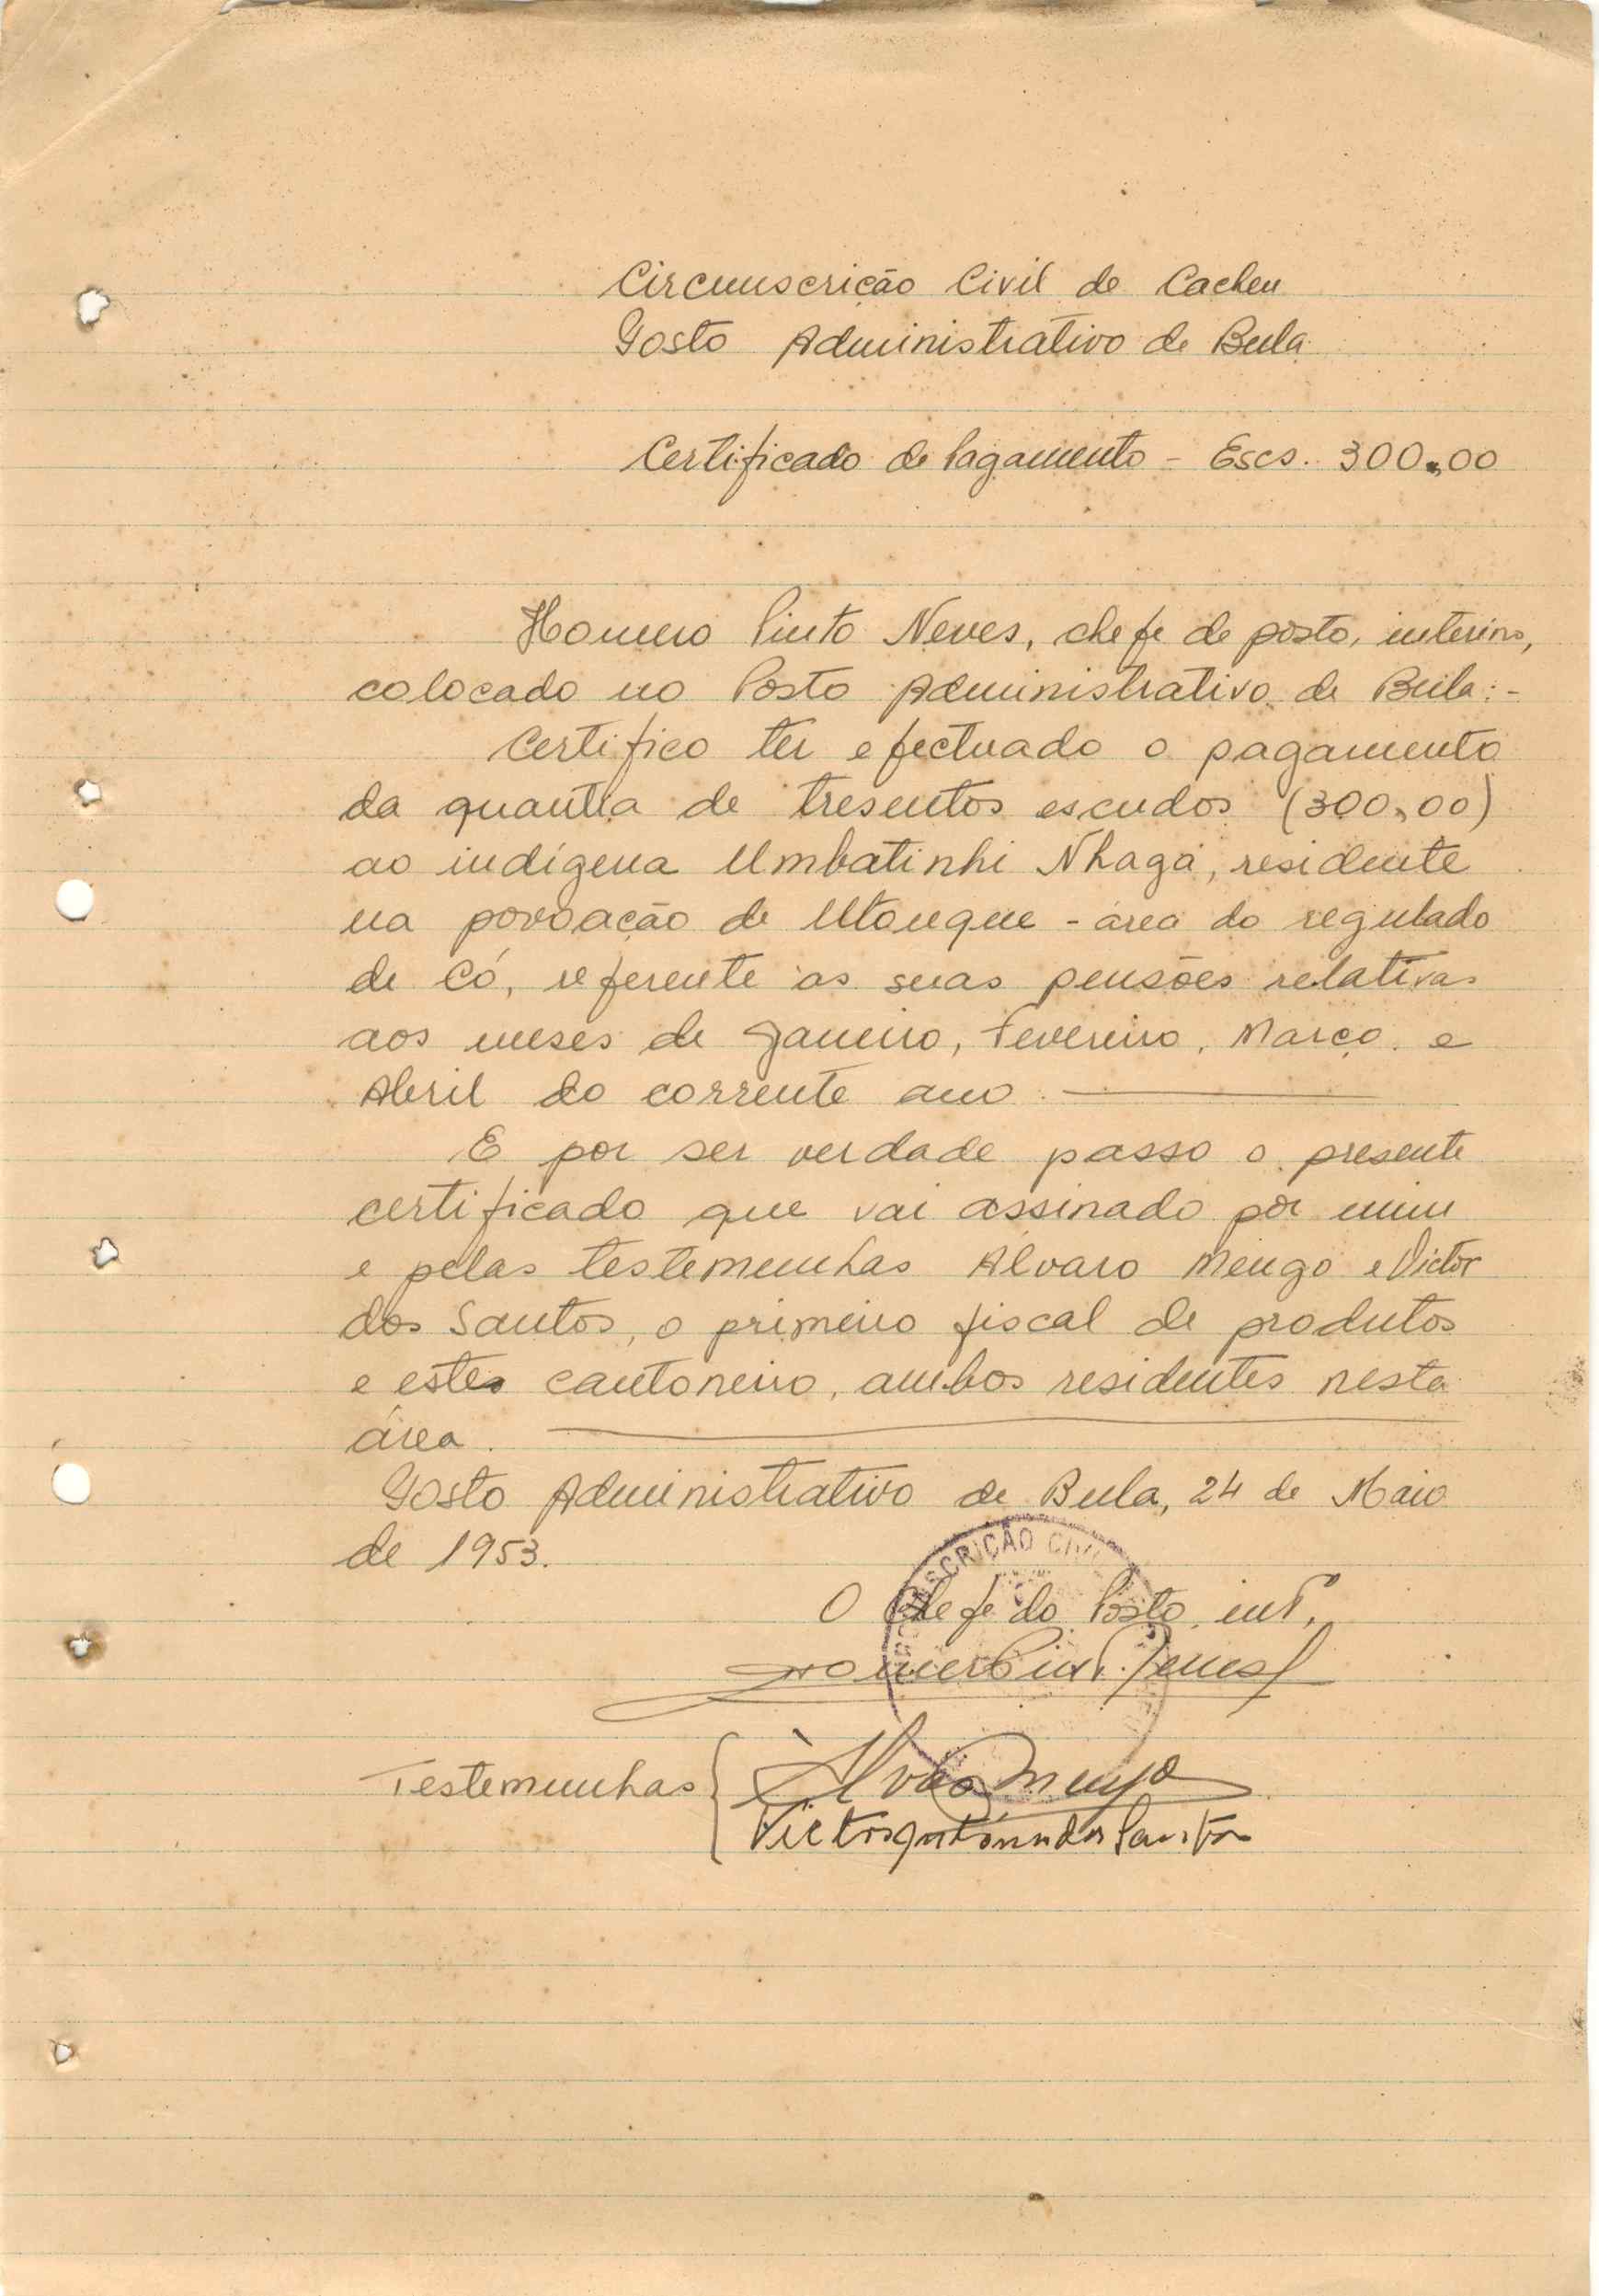 Circunscrição Civil de Cacheu
Posto Administrativo de Bula
Certificado de Pagamento - Escs. 300,00
Homero Pinto Neves, chefe de posto, interino,
colocado no Posto Administrativo de Bula:-
Certifico ter efectuado o pagamento
da quantia de tresentos escudos (300,00)
ao indígena Umbatinhi Nhaga, residente
na povoação de - área do regulado
de Có, referente as suas pensões relativas
aos meses de Janeiro, Fevereiro, Março e
Abril do corrente ano.
E por ser verdade passo o presente
certificado que vai assinado por mim
e pelas testemunhas Alvaro Mengo e Victor
dos Santos, o primeiro fiscal de produtos
e este cantoneiro, ambos residentes nesta
área.
Posto Administrativo de Bula, 24 de Maio
de 1953.
SCRIÇÃO CIVIL
O Chefe do Posto, intº,
Homero Pinto Neves
Testemunhas
Alvaro Mengo
Victor António dos Santos